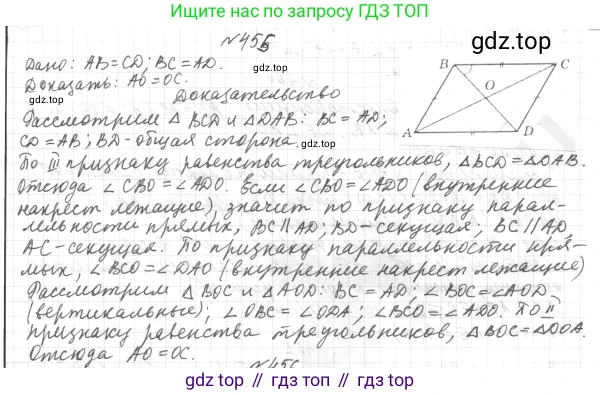 Ищите нас по запросу ГДЗ ТОП
№455
gdz.top
Дано: AB=CD; BC=AD.
Доказать: AO=OC.
Доказательство
Рассмотрим △ BCD и △DAB: BC = AD;
CD=AB; BD-общая сторона.
По III признаку равенства треугольников, △BCD=△DAB.
Отсюда ∠CBO=∠ADO. Если ∠CBO=∠ADO (внутренние
накрест лежащие), значит по признаку парал-
лельности прямых, BC||AD; BD-секущая; BC||AD,
AC-секущая. По признаку параллельности пря-
мых, ∠BCO=∠DAO (внутренние накрест лежащие)
Рассмотрим △ BOC и △AOD: BC=AD; ∠BOC=∠AOD
(вертикальные); ∠OBC=∠ODA; ∠BCO=∠ADO. По II
признаку равенства треугольников, △BOC=△DOA.
Отсюда AO=OC.
B
C
O
A
D
gdz.top
gdz.top // гдз.топ // gdz.top